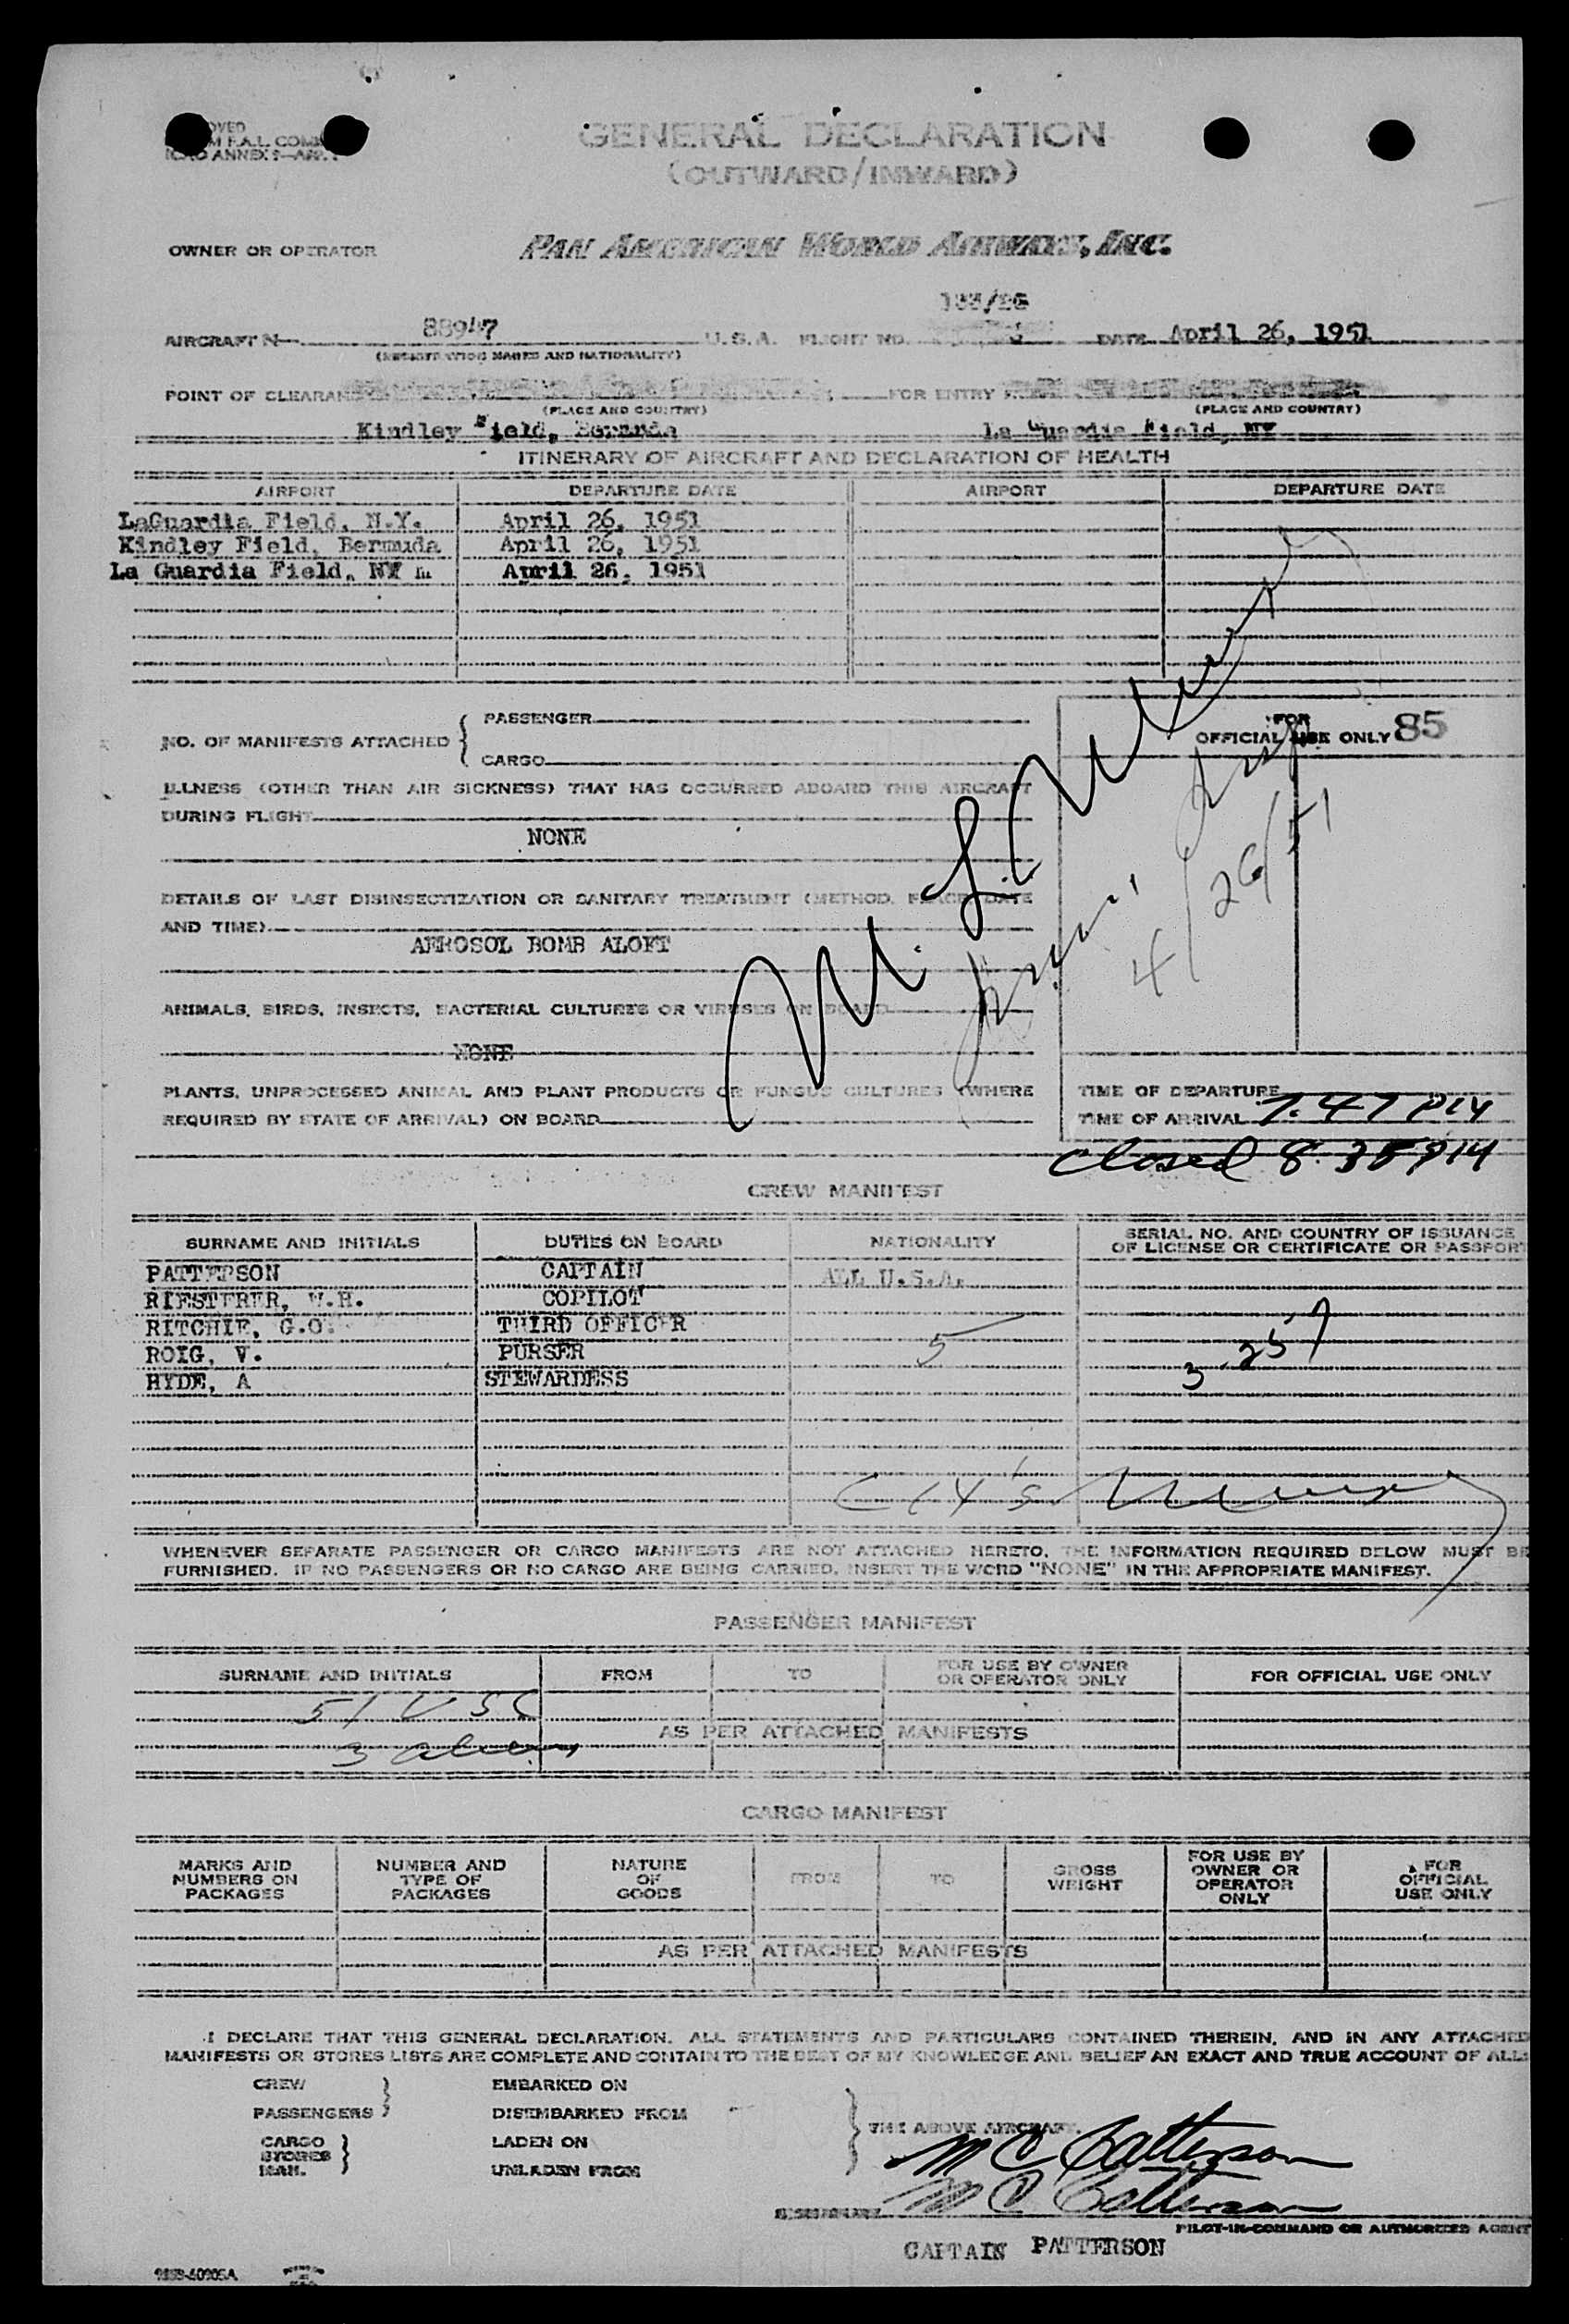 GENERAL DECLARATION
(OUTWARD/INWARD)
OWNER OR OPERATOR PAN AMERICAN WORLD AIRWAYS, INC.
AIRCRAFT N 88947 U.S.A. FLIGHT NO. DATE April 26, 1951
(REGISTRATION MARKS AND NATIONALITY)
POINT OF CLEARANCE FOR ENTRY
(PLACE AND COUNTRY) (PLACE AND COUNTRY)
Kindley Field, Bermuda La Guardia Field, NY
ITINERARY OF AIRCRAFT AND DECLARATION OF HEALTH
AIRPORT DEPARTURE DATE AIRPORT DEPARTURE DATE
LaGuardia Field, N.Y. April 26, 1951
Kindley Field, Bermuda April 26, 1951
La Guardia Field, NY April 26, 1951
NO. OF MANIFESTS ATTACHED { PASSENGER
CARGO
FOR
OFFICIAL USE ONLY 85
ILLNESS (OTHER THAN AIR SICKNESS) THAT HAS OCCURRED ABOARD THIS AIRCRAFT
DURING FLIGHT
NONE
4/26/51
DETAILS OF LAST DISINSECTIZATION OR SANITARY TREATMENT (METHOD, PLACE, DATE
AND TIME)
AEROSOL BOMB ALOFT
ANIMALS, BIRDS, INSECTS, BACTERIAL CULTURES OR VIRUSES ON BOARD
NONE
PLANTS, UNPROCESSED ANIMAL AND PLANT PRODUCTS OR FUNGUS CULTURES (WHERE
REQUIRED BY STATE OF ARRIVAL) ON BOARD
TIME OF DEPARTURE
TIME OF ARRIVAL 7:47 PM
Closed 8:35 PM
CREW MANIFEST
SURNAME AND INITIALS DUTIES ON BOARD NATIONALITY SERIAL NO. AND COUNTRY OF ISSUANCE
OF LICENSE OR CERTIFICATE OR PASSPORT
PATTERSON CAPTAIN ALL U.S.A.
RIESTERER, W.H. COPILOT
RITCHIE, G.O. THIRD OFFICER
ROIG, V. PURSER 5
HYDE, A STEWARDESS
WHENEVER SEPARATE PASSENGER OR CARGO MANIFESTS ARE NOT ATTACHED HERETO, THE INFORMATION REQUIRED BELOW MUST BE
FURNISHED. IF NO PASSENGERS OR NO CARGO ARE BEING CARRIED, INSERT THE WORD "NONE" IN THE APPROPRIATE MANIFEST.
PASSENGER MANIFEST
SURNAME AND INITIALS FROM TO FOR USE BY OWNER
OR OPERATOR ONLY FOR OFFICIAL USE ONLY
51 USC
AS PER ATTACHED MANIFESTS
3 aliens
CARGO MANIFEST
MARKS AND
NUMBERS ON
PACKAGES
NUMBER AND
TYPE OF
PACKAGES
NATURE
OF
GOODS
FROM
TO
GROSS
WEIGHT
FOR USE BY
OWNER OR
OPERATOR
ONLY
FOR
OFFICIAL
USE ONLY
AS PER ATTACHED MANIFESTS
I DECLARE THAT THIS GENERAL DECLARATION, ALL STATEMENTS AND PARTICULARS CONTAINED THEREIN, AND IN ANY ATTACHED
MANIFESTS OR STORES LISTS ARE COMPLETE AND CONTAIN TO THE BEST OF MY KNOWLEDGE AND BELIEF AN EXACT AND TRUE ACCOUNT OF ALL:
CREW EMBARKED ON
PASSENGERS DISEMBARKED FROM
THE ABOVE AIRCRAFT.
CARGO LADEN ON
STORES
UNLADEN FROM
M C Patterson
M C Patterson
PILOT-IN-COMMAND OR AUTHORIZED AGENT
CAPTAIN PATTERSON